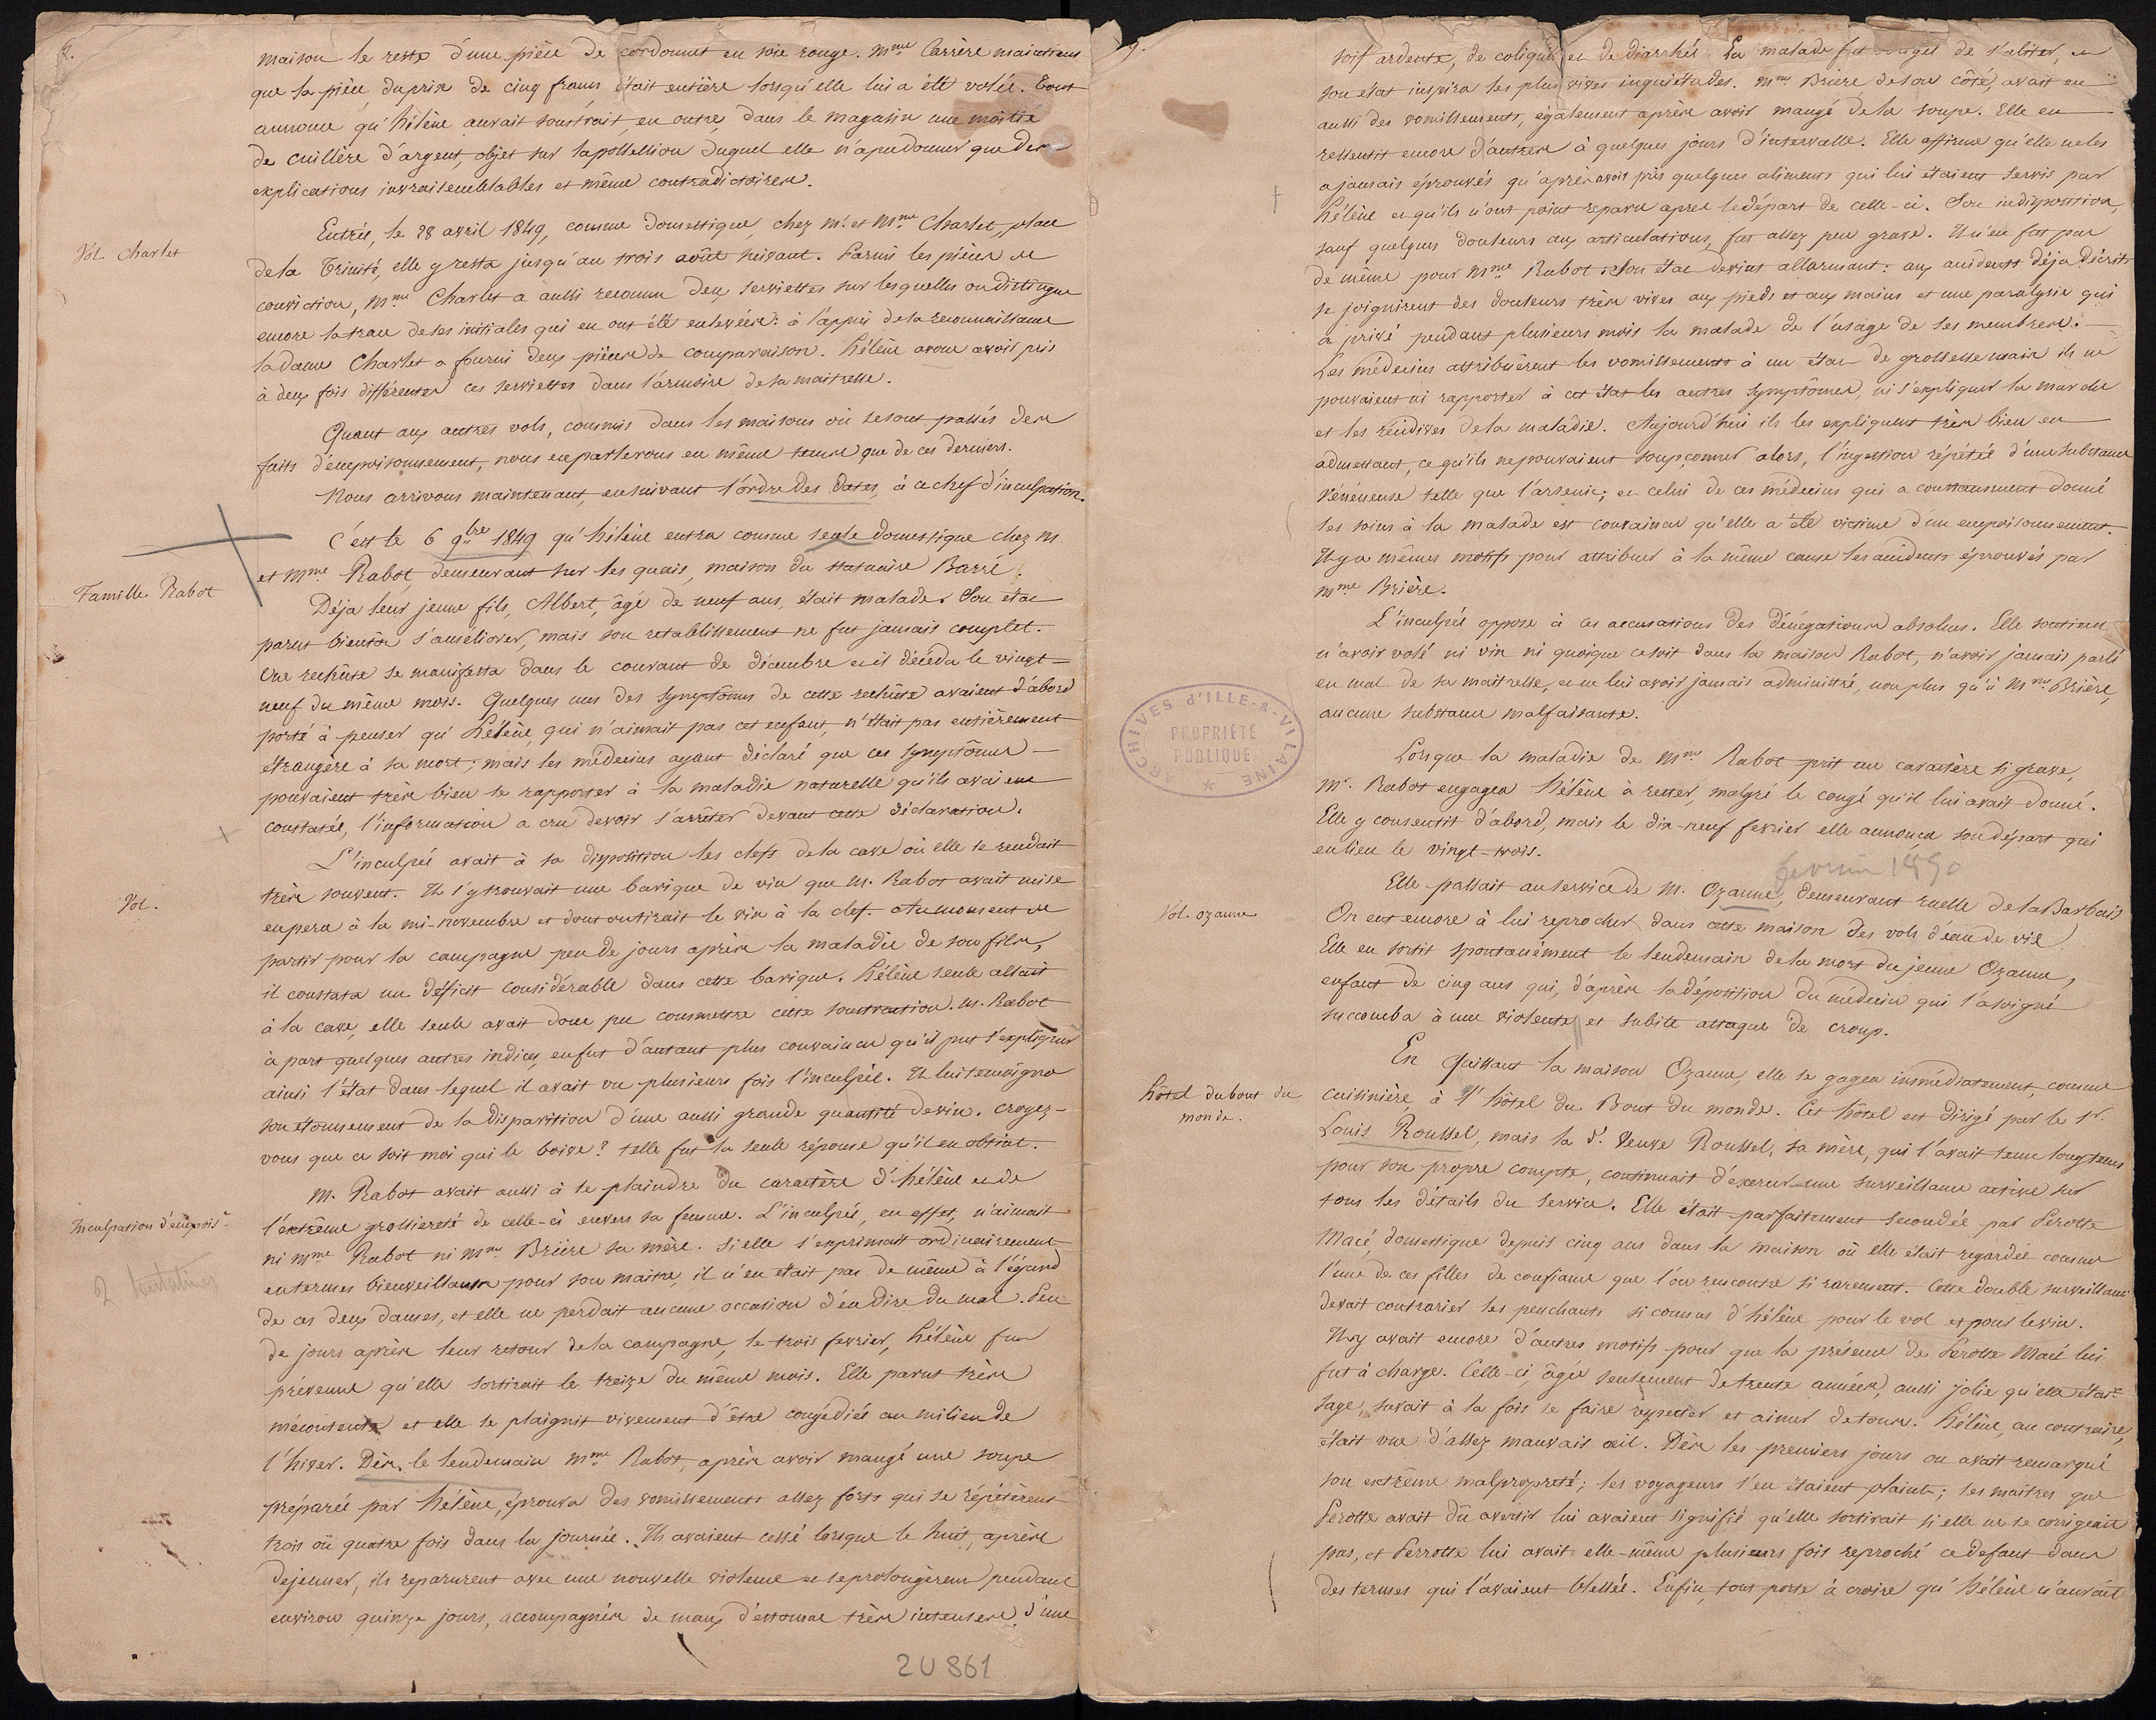 8.
maison le reste d'une pièce de cordonnet en soie rouge. Mme Carrère maintient
que la pièce, du prix de cinq francs, était entière lorsqu'elle lui a été volée. Tout
annonce qu'hélène aurait soustrait, en outre, dans le magasin une moitié
de cuillère d'argent, objet sur la possession duquel elle n'a pu donner que des
explications invraisemblables et même contradictoires.
Vol. Charlet
Entrée, le 28 avril 1849, comme domestique, chez Mr et Mme Charlet, place
de la Trinité, elle y resta jusqu'au trois août suivant. Parmi les pièces de
conviction, Mme Charlet a aussi reconnu deux serviettes sur lesquelles on distingue
encore la trace de ses initiales qui en ont été enlevées: à l'appui de la reconnaissance
la dame Charlet a fourni deux pièces de comparaison. Hélène avoue avoir pris
à deux fois différentes ces serviettes dans l'armoire de sa maitresse.
Quant aux autres vols, commis dans les maisons où se sont passés des
faits d'empoisonnement, nous en parlerons en même tems que de ces derniers.
Nous arrivons maintenant, en suivant l'ordre des dates, à ce chef d'inculpation.
C'est le 6 9bre 1849 qu'hélène entra comme seule domestique chez M.
et Mme Rabot, demeurant sur les quais, maison du statuaire Barré.
Famille Rabot
Déja leur jeune fils, Albert, âgé de neuf ans, était malade. Son état
parut bientôt s'améliorer, mais son rétablissement ne fut jamais complet.
Une rechûte se manifesta dans le courant de décembre et il décéda le vingt-
neuf du même mois. Quelques uns des symptômes de cette rechûte avaient d'abord
porté à penser qu'Hélène, qui n'aimait pas cet enfant, n'était pas entièrement
étrangère à sa mort; mais les médecins ayant déclaré que ces symptômes
pouvaient très bien se rapporter à la maladie naturelle qu'ils avaient
constatée, l'information a cru devoir s'arrêter devant cette déclaration.
Vol.
L'inculpée avait à sa disposition les clefs de la cave où elle se rendait
très souvent. Il s'y trouvait une barique de vin que M. Rabot avait mise
en perce à la mi-novembre et dont on tirait le vin à la clef. Au moment de
partir pour la campagne peu de jours après la maladie de son fils,
il constata un déficit considérable dans cette barique. Hélène seule allait
à la cave, elle seule avait donc pu commettre cette soustraction. M. Rabot
à part quelques autres indices, en fut d'autant plus convaincu qu'il put s'expliquer
ainsi l'état dans lequel il avait vu plusieurs fois l'inculpée. Il lui témoigna
son étonnement de la disparition d'une aussi grande quantité de vin. Croyez-
vous que ce soit moi qui le boive? telle fut la seule réponse qu'il en obtint.
Inculpation d'empoist
2 tentatives
M. Rabot avait aussi à se plaindre du caractère d'hélène et de
l'extrême grossiereté de celle-ci envers sa femme. L'inculpée, en effet, n'aimait
ni Mme Rabot ni Mme Brière sa mère. Si elle s'exprimait ordinairement
en termes bienveillants pour son maitre, il n'en était pas de même à l'égard
de ces deux dames, et elle ne perdait aucune occasion d'en dire du mal. Peu
de jours après leur retour de la campagne, le trois fevrier, hélène fut
prévenue qu'elle sortirait le treize du même mois. Elle parut très
mécontente et elle se plaignit vivement d'être congédiée au milieu de
l'hiver. Dès le lendemain Mme Rabot, après avoir mangé une soupe
préparée par hélène, éprouva des vomissements assez forts qui se répétèrent
trois où quatre fois dans la journée. Ils avaient cessé lorsque le huit, après
dejeuner, ils reparurent avec une nouvelle violence et se prolongèrent pendant
environ quinze jours, accompagnés de maux d'estomac très intenses, d'une
2 U 861
9.
soif ardente, de coliques et de diarrhée. La malade fut de s'aliter, et
son état inspira les plus vives inquiétudes. Mme Brière, de son côté, avait eu
aussi des vomissements, également après avoir mangé de la soupe. Elle en
ressentit encore d'autres à quelques jours d'intervalle. Elle affirme qu'elle ne les
a jamais éprouvés qu'après avoir pris quelques aliments qui lui étaient servis par
hélène et qu'ils n'ont point reparu après le départ de celle-ci. Son indisposition,
sauf quelques douleurs aux articulations, fut assez peu grave. Il n'en fut pas
de même pour Mme Rabot. Son état devint allarmant: aux accidents déja décrits
se joignirent des douleurs très vives aux pieds et aux mains et une paralysie qui
a privé pendant plusieurs mois la malade de l'usage de ses membres.
Les médecins attribuèrent les vomissements à un état de grossesse mais ils ne
pouvaient ni rapporter à cet état les autres symptômes, ni s'expliquer la marche
et les récidives de la maladie. Aujourd'hui ils les expliquent très bien en
admettant, ce qu'ils ne pouvaient soupçonner alors, l'ingestion répétée d'une substance
vénéneuse telle que l'arsenic; et celui de ces médecins qui a constamment donné
ses soins à la malade est convaincu qu'elle a été victime d'un empoisonnement.
Il y a mêmes motifs pour attribuer à la même cause les accidents éprouvés par
Mme Brière.
L'inculpée oppose à ces accusations des dénégations absolues. Elle soutient
n'avoir volé ni vin ni quoique ce soit dans la maison Rabot, n'avoir jamais parlé
en mal de sa maitresse, et ne lui avoir jamais administré, non plus qu'à Mme Brière,
aucune substance malfaisante.
ARCHIVES D'ILLE-&-VILAINE
PROPRIÉTÉ
PUBLIQUE
Lorsque la maladie de Mme Rabot prit un caractère si grave,
Mr. Rabot engagea hélène à rester, malgré le congé qu'il lui avait donné.
Elle y consentit d'abord, mais le dix-neuf fevrier elle annonça son départ qui
eu lieu le vingt-trois.
fevrier 1850
Vol. ozanne
Elle passait au service de M. Ozanne, demeurant ruelle de la Barbais
On eut encore à lui reprocher dans cette maison des vols d'eau de vie.
Elle en sortit spontanément le lendemain de la mort du jeune Ozanne,
enfant de cinq ans qui, d'après la déposition du médecin qui l'a soigné
succomba à une violente et subite attaque de croup.
hôtel du bout du
monde.
En quittant la maison Ozanne, elle se gagea immédiatement, comme
cuisinière, à l'hôtel du Bout du monde. Cet hôtel est dirigé par le Sr
Louis Roussel, mais la De. Veuve Roussel, sa mère, qui l'avait tenu longtems
pour son propre compte, continuait d'exercer une surveillance active sur
tous les détails du service. Elle était parfaitement secondée par Perotte
Macé, domestique depuis cinq ans dans la maison où elle était regardée comme
l'une de ces filles de confiance que l'on rencontre si rarement. Cette double surveillance
devait contrarier les penchants si connus d'hélène pour le vol et pour le vin.
Il y avait encore d'autres motifs pour que la présence de Perotte Macé lui
fut à charge. Celle-ci, âgée seulement de trente années, aussi jolie qu'elle était
sage, savait à la fois se faire respecter et aimer de tous. Hélène, au contraire,
était vue d'assez mauvais œil. Dès les premiers jours on avait remarqué
son extrême malpropreté; les voyageurs s'en étaient plaints; ses maitres que
Perotte avait dû avertir lui avaient signifié qu'elle sortirait si elle ne se corrigeait
pas, et Perrotte lui avait elle-même plusieurs fois reproché ce defaut dans
des termes qui l'avaient blessée. Enfin, tout porte à croire qu'hélène n'aurait